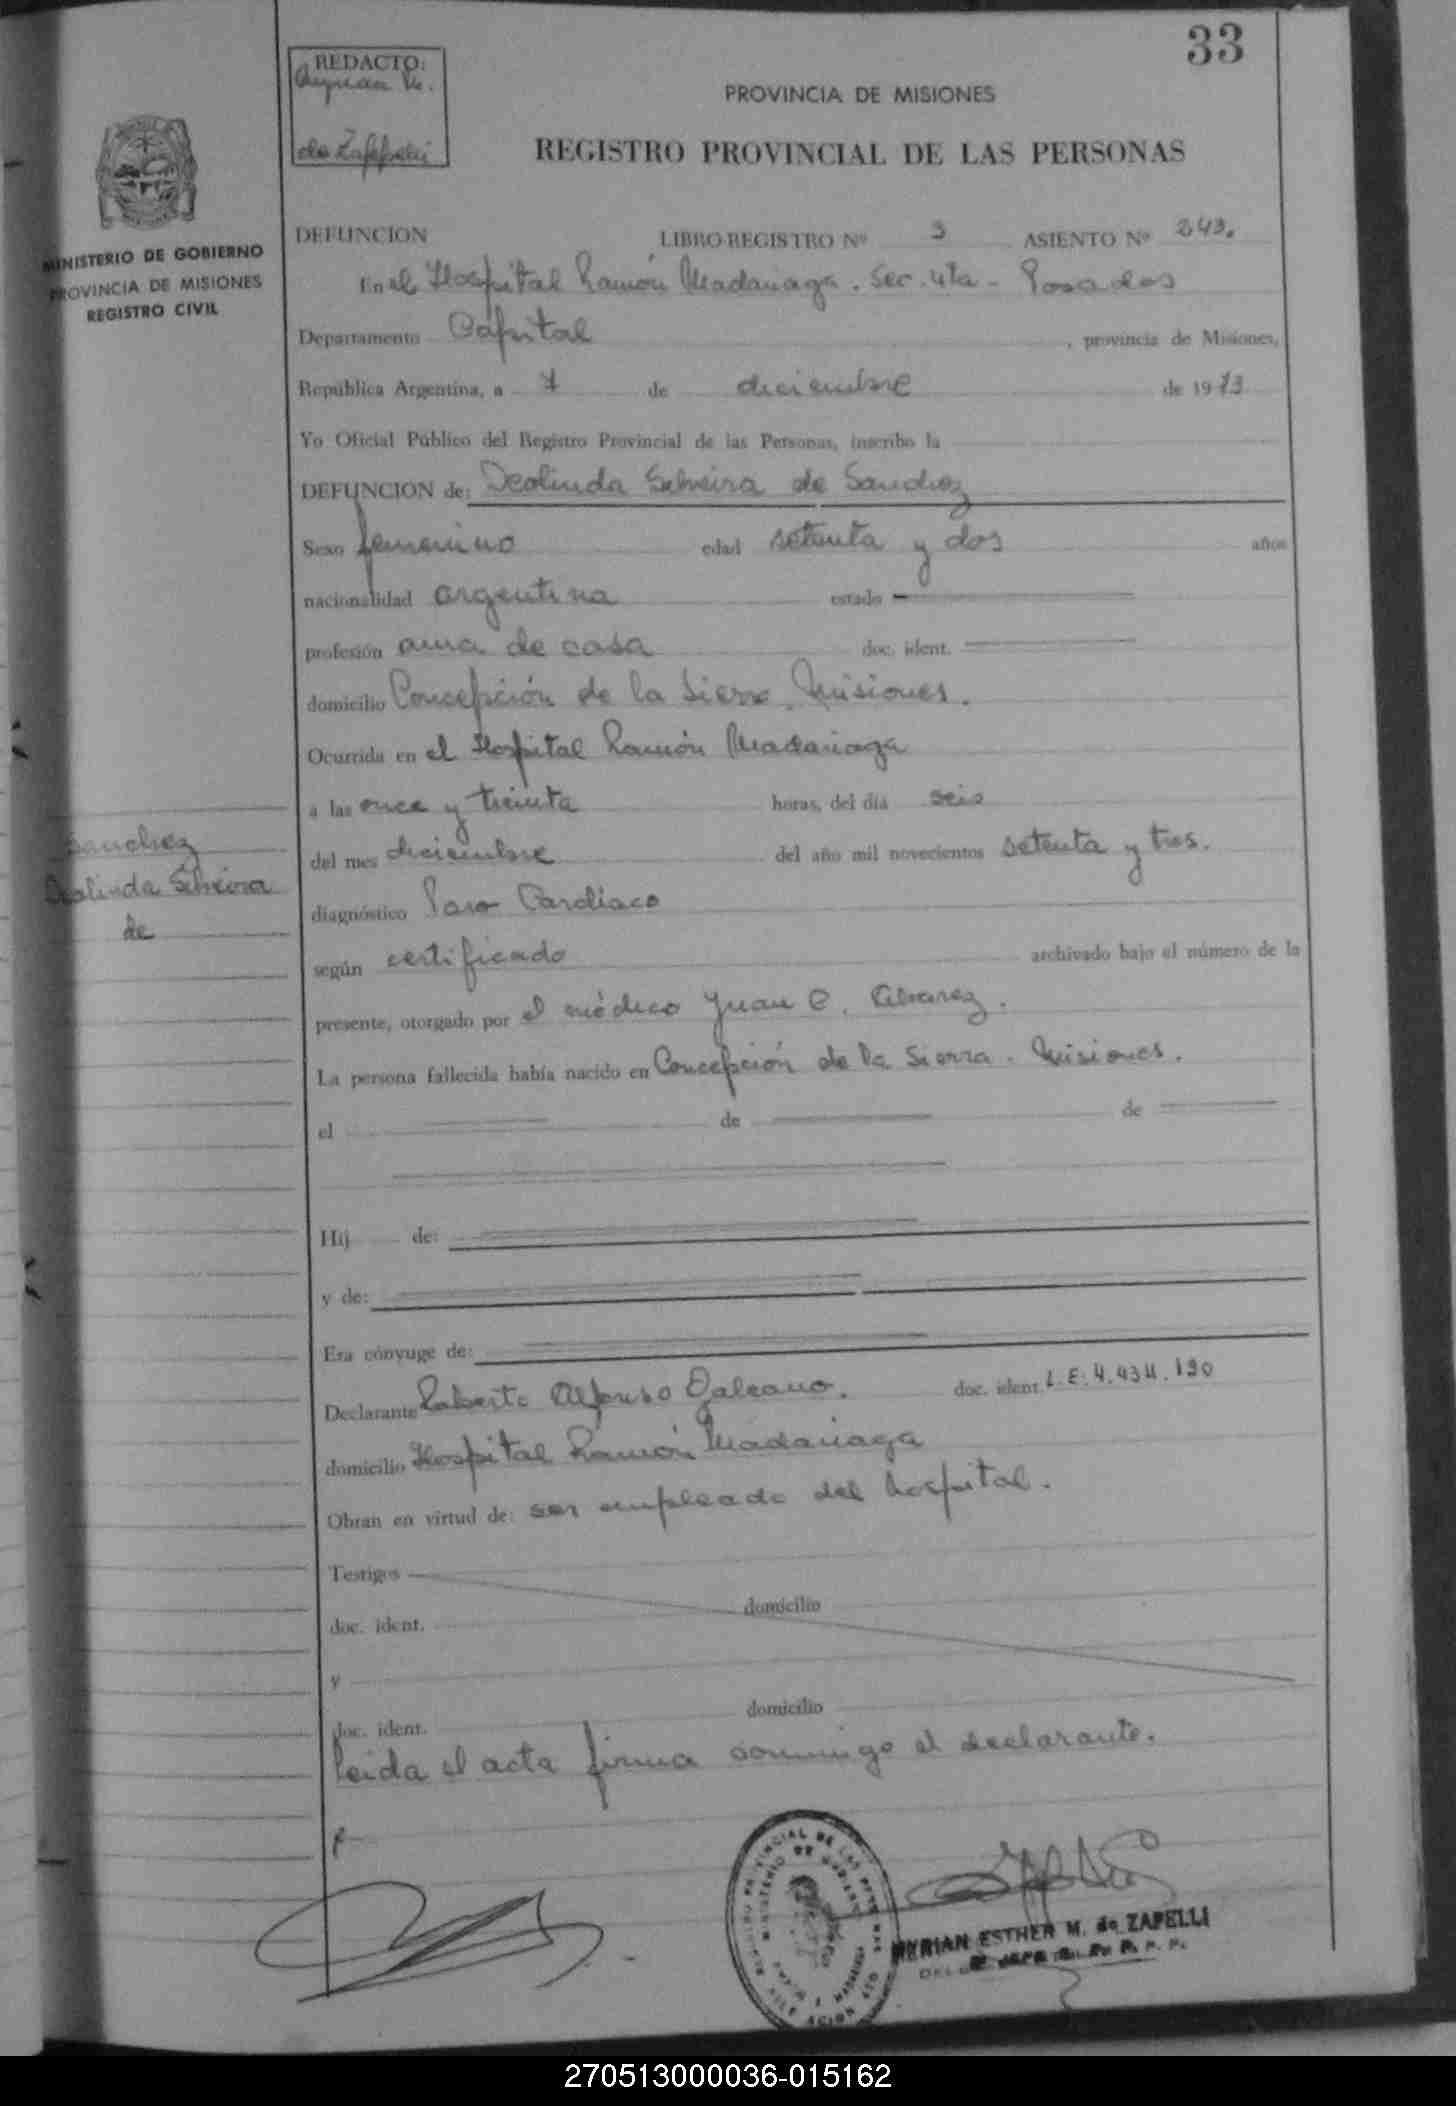 33
REDACTO:
de Zappelli
PROVINCIA DE MISIONES
REGISTRO PROVINCIAL DE LAS PERSONAS
MINISTERIO DE GOBIERNO
PROVINCIA DE MISIONES
REGISTRO CIVIL
DEFUNCION LIBRO REGISTRO Nº 3 ASIENTO Nº 243.
En el Hospital Ramón Madariaga. Sec. 4ta - Posadas
Departamento Capital, provincia de Misiones,
República Argentina, a 7 de diciembre de 1973
Yo Oficial Público del Registro Provincial de las Personas, inscribo la
DEFUNCION de: Deolinda Silveira de Sanchez
Sexo femenino edad setenta y dos años
nacionalidad argentina estado
profesión ama de casa doc. ident.
domicilio Concepción de la Sierra. Misiones.
Ocurrida en el Hospital Ramón Madariaga
a las once y treinta horas, del día seis
del mes diciembre del año mil novecientos setenta y tres.
Sanchez
Deolinda Silveira
de
diagnóstico Paro Cardiaco
según certificado archivado bajo el número de la
presente, otorgado por el médico Juan C. Alvarez.
La persona fallecida había nacido en Concepción de la Sierra. Misiones.
el de de
Hij de:
y de:
Era cónyuge de:
Declarante Roberto Alfonso Galeano. doc. ident. L.E: 4.434.190
domicilio Hospital Ramón Madariaga
Obran en virtud de: ser empleado del hospital.
Testigos
doc. ident. domicilio
y
doc. ident. domicilio
Leida el acta firma conmigo el declarante.
MYRIAN ESTHER M. de ZAPELLI
270513000036-015162